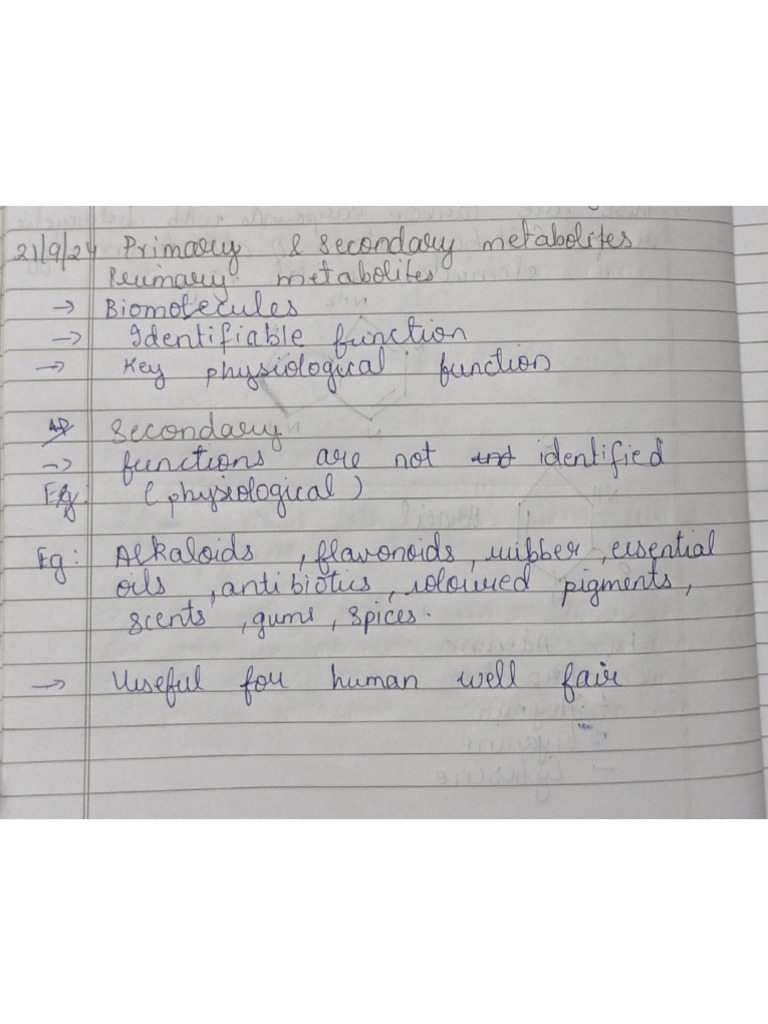 21/9/24 Primary & Secondary metabolites
Primary metabolites
→ Biomolecules
→ Identifiable function
→ Key physiological function
Secondary
→ functions are not identified
Eg: (physiological)
Eg: Alkaloids, flavonoids, rubber, essential
oils, antibiotics, coloured pigments,
scents, gums, spices.
→ Useful for human well fair